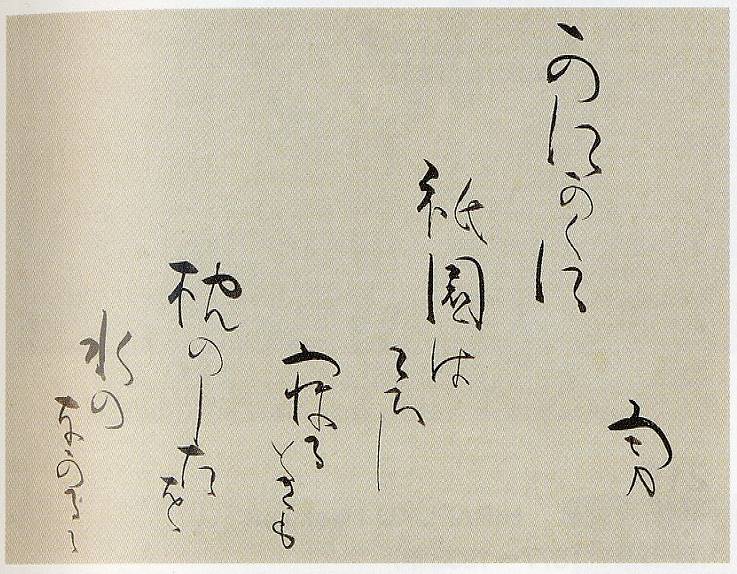 勇
かにかくに
祇園は
こひし
寝るときも
枕のしたを
水の
ながるる